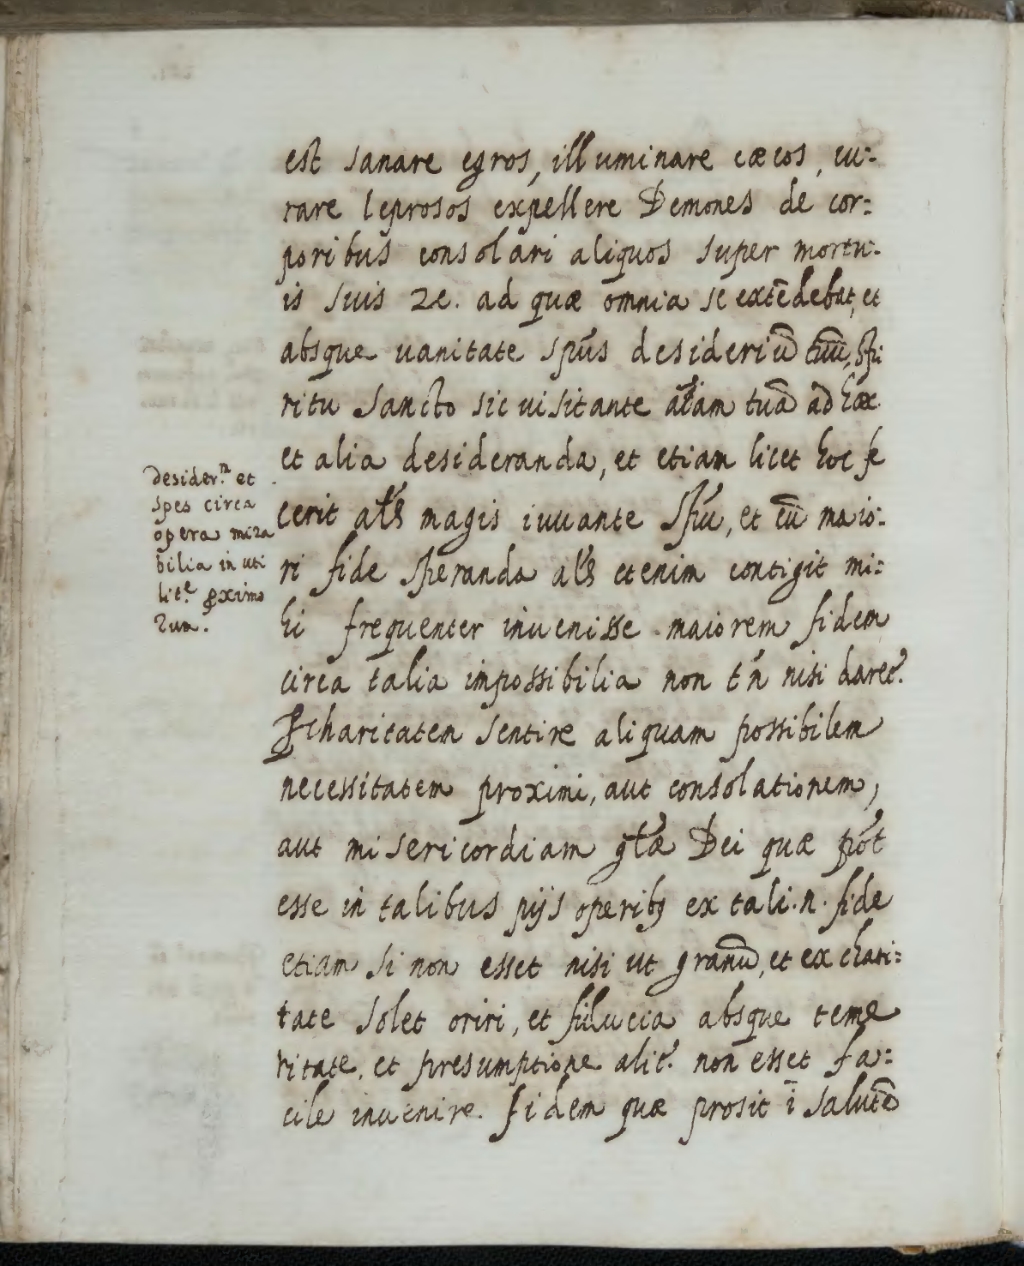 est sanare egros, illuminare cæcos, cu:
rare leprosos expellere Demones de cor:
poribus consolari aliquos super mortu:
is suis 2c. ad quæ omnia se extēdebat, et
absque uanitate spūs desideriū tuū, Spi
ritu Sancto sic uisitante aīam tuā ad hæc
et alia desideranda, et etiam licet hoc fe
cerit als magis iuuante Spū, et cū maio:
ri fide speranda als etenim contigit mi:
hi frequenter inuenisse maiorem fidem
circa talia impossibilia non tn̄ nisi daret.
ꝑ charitatem sentire aliquam possibilem
necessitatem proximi, aut consolationem,
aut misericordiam gl̄æ Dei quæ pōt
esse in talibus pijs operibꝫ ex tali .n. fide
etiam si non esset nisi ut granū, et ex chari:
tate solet oriri, et fiducia absque teme
ritate, et presumptione alit. non esset fa:
cile inuenire. fidem quæ prosit ī salutē
Desider.m et
spes circa
opera mira
bilia in uti
lit.e ꝓximo
rum.